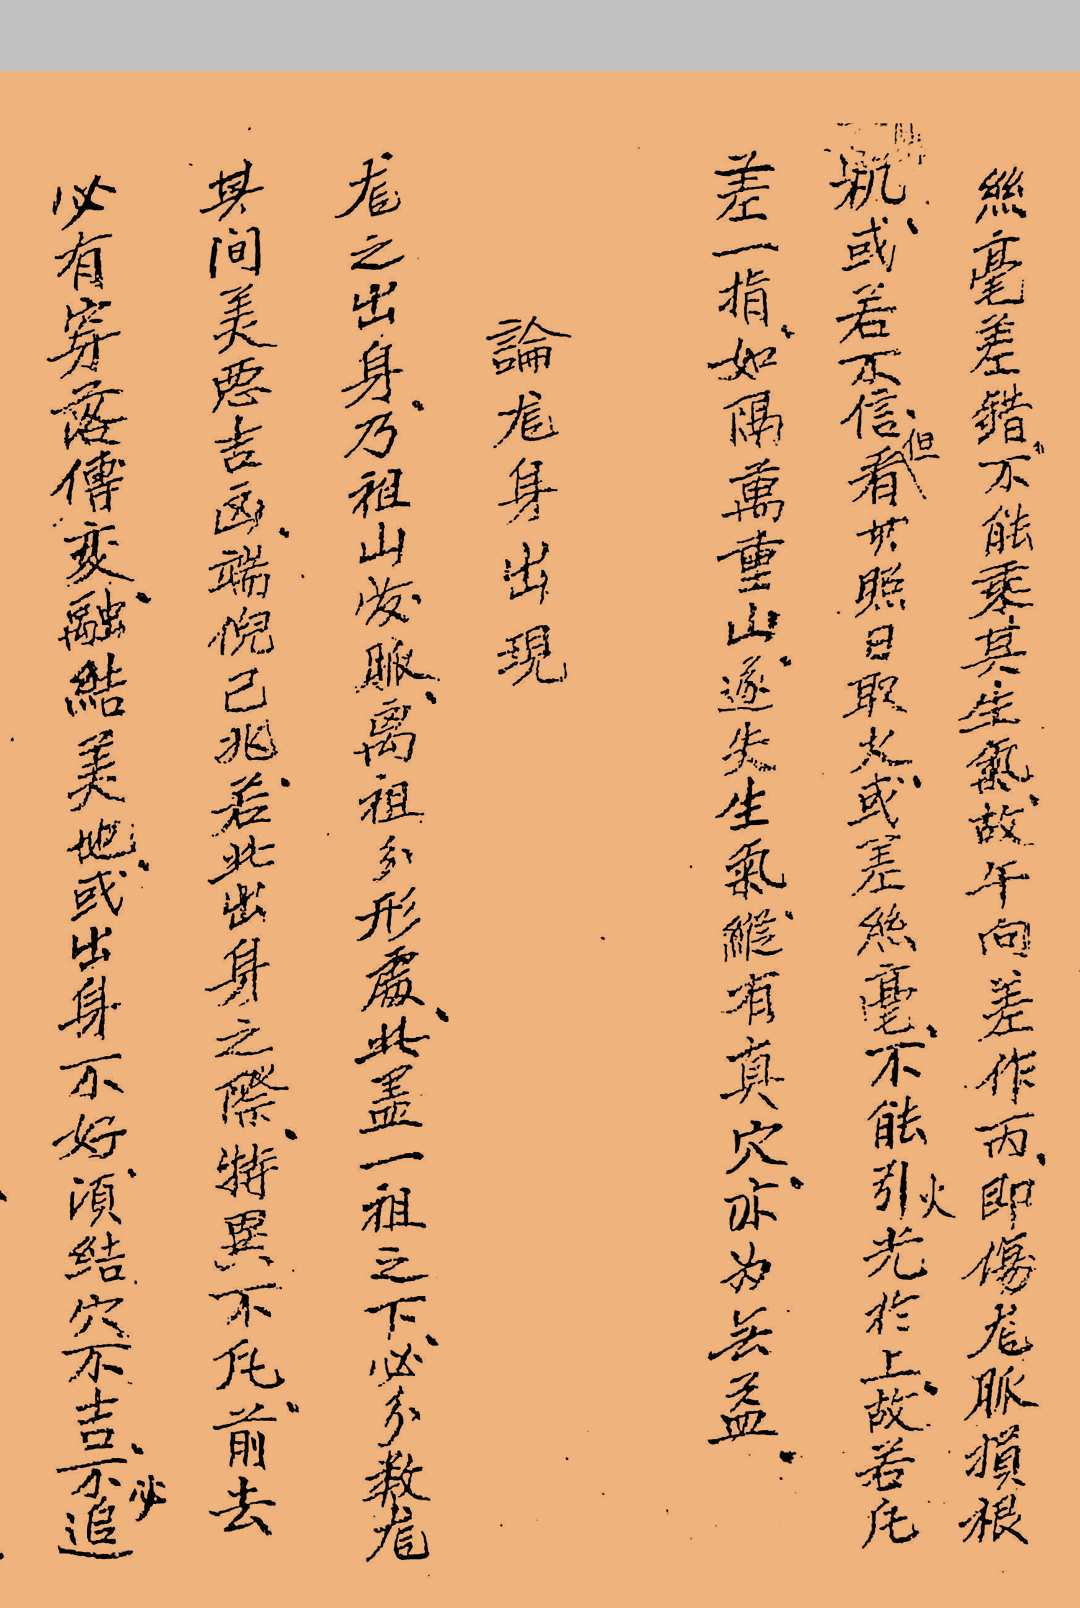 絲毫差錯不能乘其生氣故午向差作丙即傷龙脈損根
親或若不信但看世照日取火或差絲毫不能引火光於上故若凡
差一指如隔萬重山遂失生氣縱有真穴亦为无益
論龙身出現
龙之出身乃祖山发脈离祖分形處此盖一祖之下必分数龙
其间美恶吉凶端倪已兆若此出身之際特異不凡前去
必有穿落傳变融結美地或出身不好須結穴不吉不必追